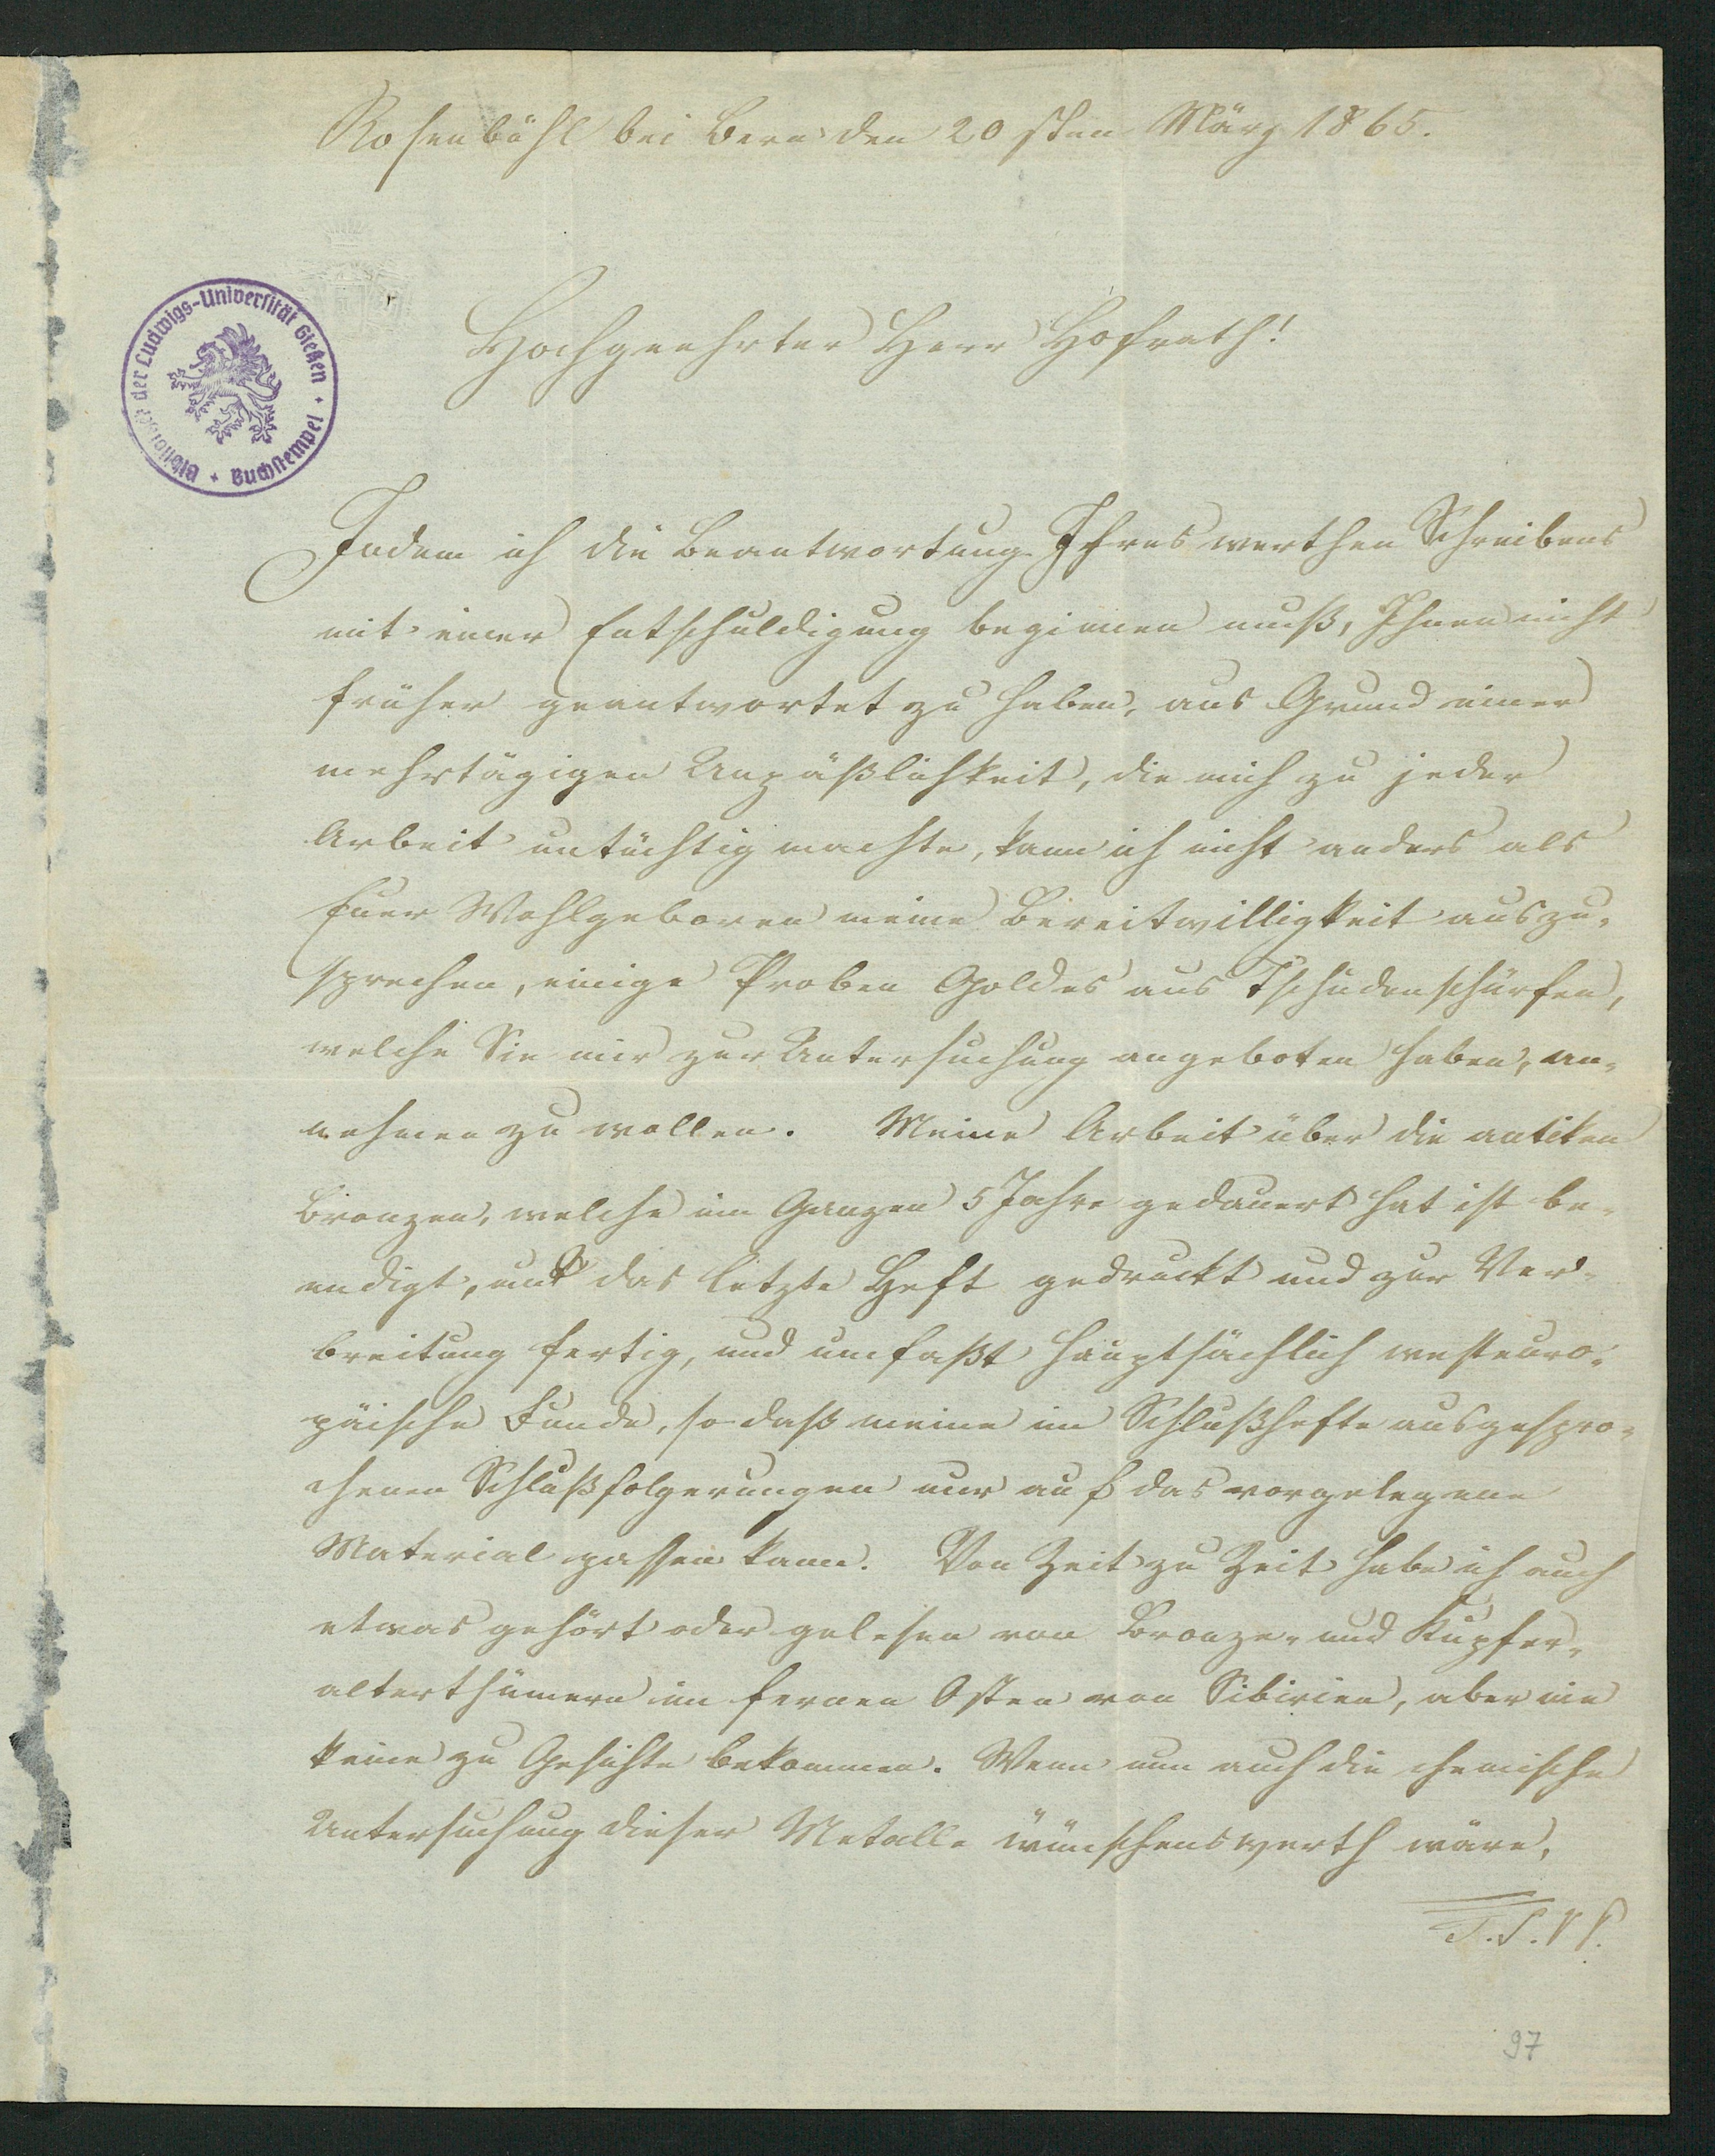 Rosenbühl bei Bern den 20sten März 1865.
Bibliothek der Ludwigs-Universität Gießen + Buchstempel +
Hochgeehrter Herr Hofrath!
Indem ich die Beantwortung Ihres werthen Schreibens
mit einer Entschuldigung beginnen muß, Ihnen nicht
früher geantwortet zu haben, aus Grund einer
mehrtägigen Unpäßlichkeit, die mich zu jeder
Arbeit untüchtig machte, kann ich nicht anders als
Euer Wohlgeboren meine Bereitwilligkeit auszu-
sprechen, einige Proben Goldes aus Tschudenschürfen,
welche Sie mir zur Untersuchung angeboten haben, an-
nehmen zu wollen. Meine Arbeit über die antiken
Bronzen, welche im Ganzen 5 Jahre gedauert hat ist be-
endigt, und das letzte Heft gedruckt und zur Ver-
breitung fertig, und umfaßt hauptsächlich westeuro-
päische Funde, so daß meine im Schlußhefte ausgespro-
chenen Schlußfolgerungen nur auf das vorgelegene
Material passen kann. Von Zeit zu Zeit habe ich auch
etwas gehört oder gelesen von Bronze- und Kupfer-
alterthümern im fernen Osten von Sibirien, aber nie
keine zu Gesichte bekommen. Wenn nun auch die chemische
Untersuchung dieser Metalle wünschenswerth wäre,
T.S.V.P.
97